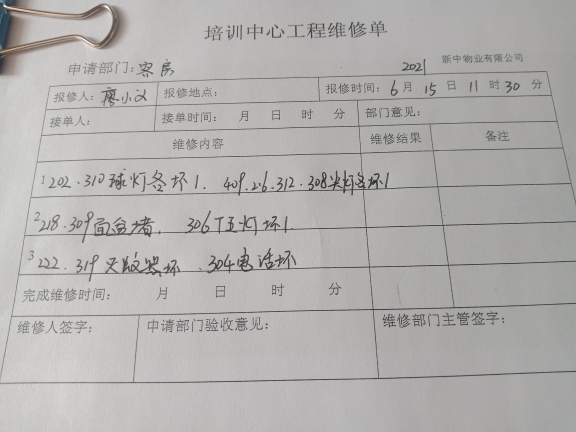 培训中心工程维修单
申请部门：客房 2021 新中物业有限公司
报修人：廖小义 报修地点： 报修时间：6月15日11时30分
接单人： 接单时间： 月 日 时 分 部门意见：
维修内容 维修结果 备注
1 202.310球灯各坏1. 409.26.312.308尖灯各坏1
2 218.309面盆堵. 306 灯坏1.
3 222.319灭蚊器坏.304电话坏
完成维修时间： 月 日 时 分
维修人签字： 申请部门验收意见： 维修部门主管签字：